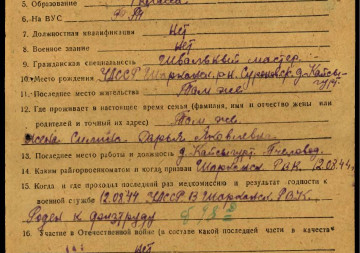 5. Образование
6. На ВУС
7. Должностная квалификация Нет
8. Военное звание Нет
9. Гражданская специальность мастер
10. Место рождения УАССР Шарканск. р-н,
11. Последнее место жительства Там же
12. Где проживает в настоящее время семья (фамилия, имя и отчество жены или
родителей и точный адрес) Там же
Дарья Яковлевна
13. Последнее место работы и должность д.
14. Каким райгорвоенкоматом и когда призван Шарканск. РВК 12.08.44
15. Когда и где проходил последний раз медкомиссию и результат годности к
военной службе 12.08.44 УАССР в Шарканск. РВК.
Годен к физтруду
16. Участие в Отечественной войне (в составе какой последней части в качестве
Нет